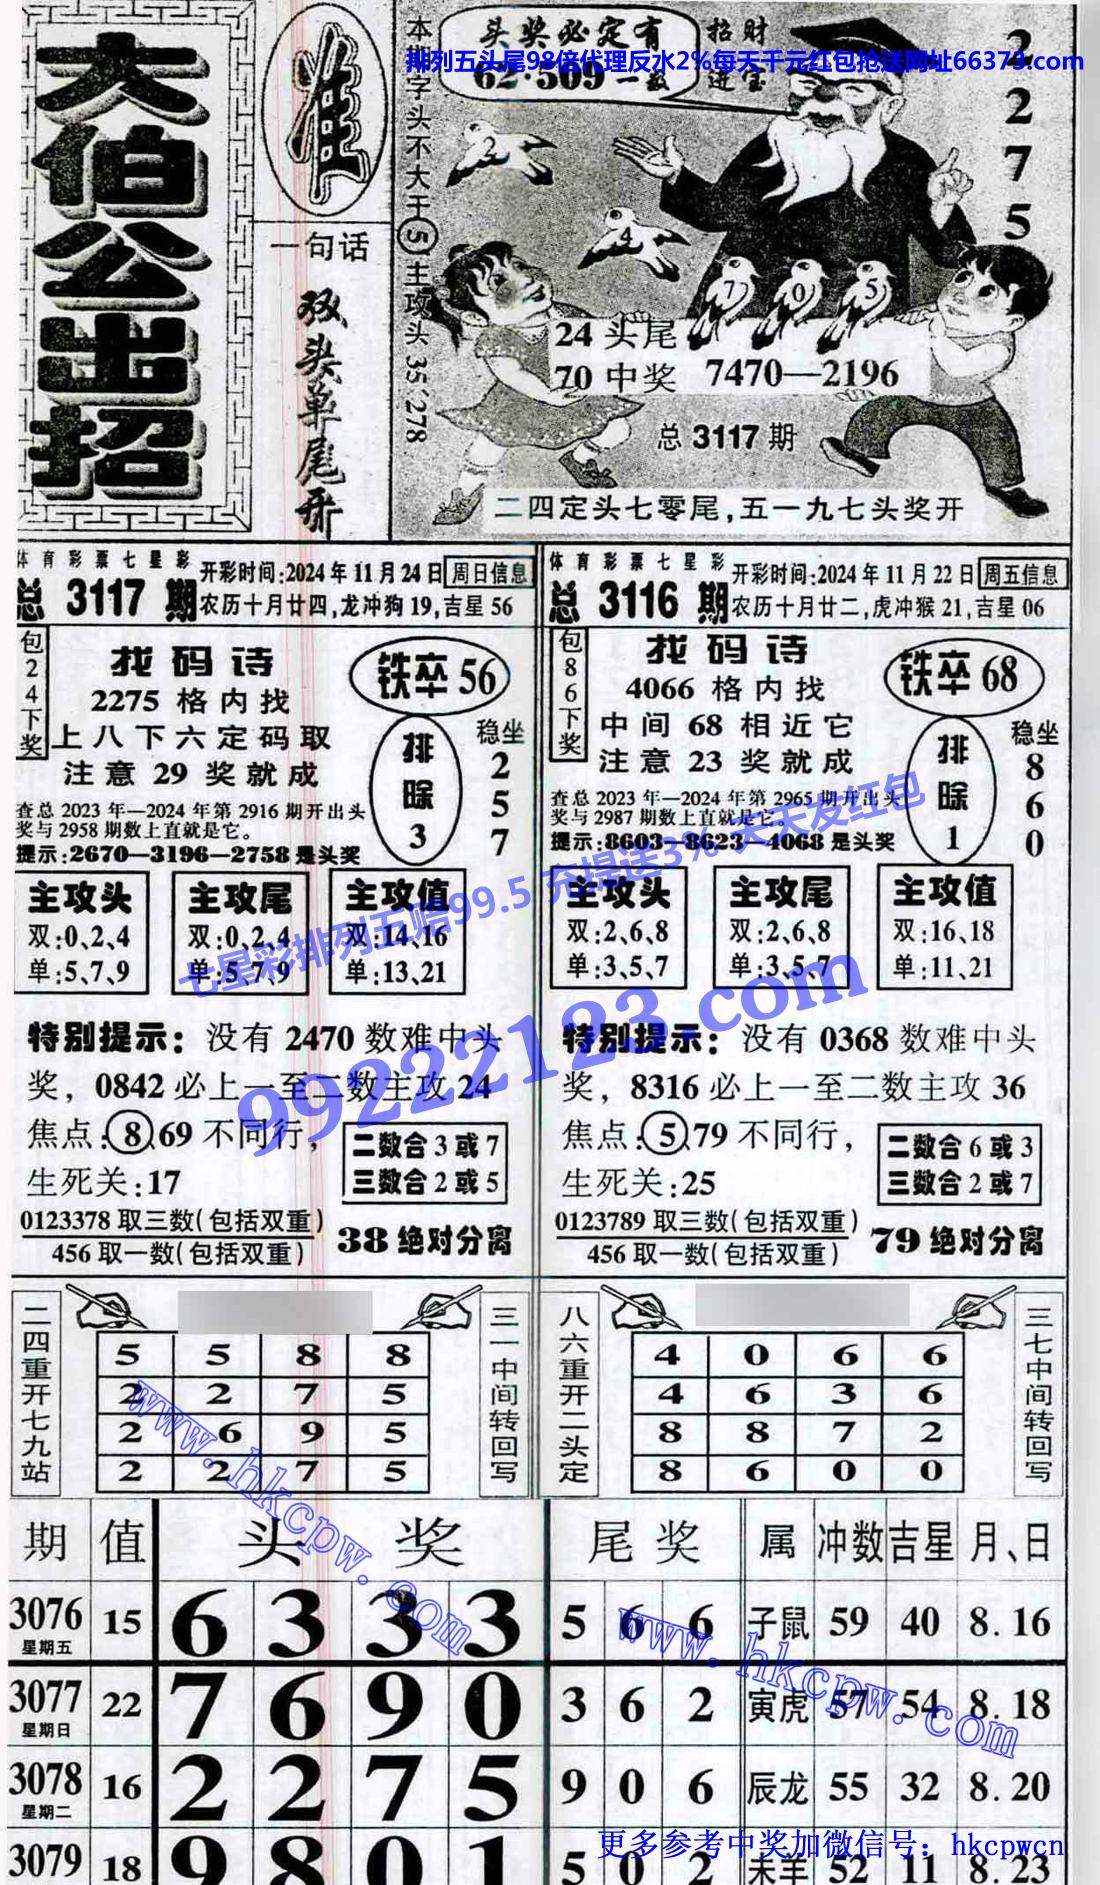 大伯公出招
准
一句话
双头单尾开
本排字头不大于⑤主攻头35、278
头奖必定有
62·509一数
招财
进宝
排列五头尾98倍代理反水2%每天千元红包抢送网址66373.com
2
2
7
5
2
4
7 0 5
24头尾
70中奖
7470—2196
总3117期
二四定头七零尾,五一九七头奖开
体育彩票七星彩
总 3117 期
开彩时间:2024年11月24日
周日信息
农历十月廿四,龙冲狗19,吉星56
包24下奖
找码诗
2275格内找
上八下六定码取
注意29奖就成
铁卒56
排除3
稳坐
2
5
7
查总2023年—2024年第2916期开出头
奖与2958期数上直就是它。
提示:2670—3196—2758是头奖
主攻头
双:0、2、4
单:5、7、9
主攻尾
双:0、2、4
单:5、7、9
主攻值
双:14、16
单:13、21
特别提示:没有2470数难中头
奖,0842必上一至二数主攻24
焦点:⑧、69不同行,
生死关:17
二数合3或7
三数合2或5
0123378取三数(包括双重)
456取一数(包括双重)
38绝对分离
体育彩票七星彩
总 3116 期
开彩时间:2024年11月22日
周五信息
农历十月廿二,虎冲猴21,吉星06
包86下奖
找码诗
4066格内找
中间68相近它
注意23奖就成
铁卒68
排除1
稳坐
8
6
0
查总2023年—2024年第2965期开出头
奖与2987期数上直就是它。
提示:8603—8623—4068是头奖
主攻头
双:2、6、8
单:3、5、7
主攻尾
双:2、6、8
单:3、5、7
主攻值
双:16、18
单:11、21
特别提示:没有0368数难中头
奖,8316必上一至二数主攻36
焦点:⑤、79不同行,
生死关:25
二数合6或3
三数合2或7
0123789取三数(包括双重)
456取一数(包括双重)
79绝对分离
七星彩排列五赔99.5 充提送3% 天天发红包
99222123.com
二四重开七九站
5 5 8 8
2 2 7 5
2 6 9 5
2 2 7 5
三一中间转回写
八六重开二头定
4 0 6 6
4 6 3 6
8 8 7 2
8 6 0 0
三七中间转回写
www.hkcpw.com
期 值 头奖 尾奖 属 冲数 吉星 月、日
3076 星期五 15 6 3 3 3 5 6 6 子鼠 59 40 8.16
3077 星期日 22 7 6 9 0 3 6 2 寅虎 57 54 8.18
3078 星期二 16 2 2 7 5 9 0 6 辰龙 55 32 8.20
3079 18 9 8 0 1 5 0 2 未羊 52 11 8.23
www.hkcpw.com
更多参考中奖加微信号:hkcpwcn